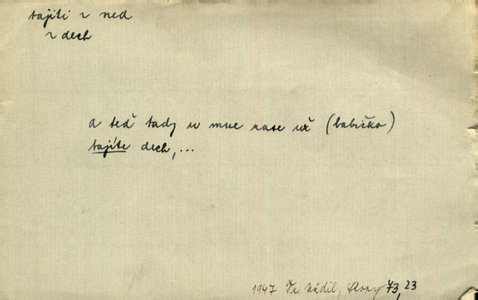 tajiti z ned
z dech
a teď tady u mne zase už (babičko)
tajíte dech,...
1947 Fr. Kudil, Slony 73,23